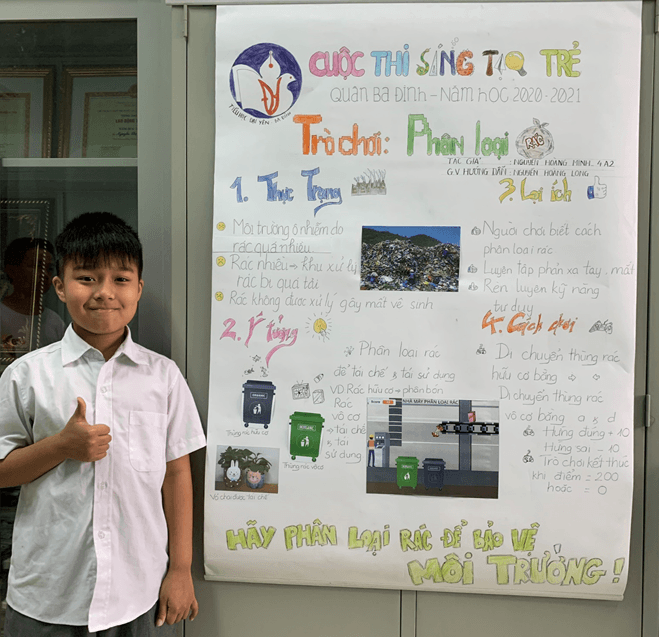 CUỘC THI SÁNG TẠO TRẺ
QUẬN BA ĐÌNH - NĂM HỌC 2020-2021
Trò chơi: Phân loại RÁC
TÁC GIẢ : NGUYỄN HOÀNG MINH. 4A2
GV HƯỚNG DẪN: NGUYỄN HOÀNG LONG
1. Thực Trạng
Môi trường ô nhiễm do
rác quá nhiều.
Rác nhiều → khu xử lý
rác bị quá tải
Rác không được xử lý gây mất vệ sinh
2. Ý tưởng
Phân loại rác
để tái chế & tái sử dụng
VD: Rác hữu cơ → phân bón
Rác
vô cơ
→ tái chế
& tái
sử dụng
Thùng rác hữu cơ
Thùng rác vô cơ
Vỏ chai được tái chế
3. Lợi ích
Người chơi biết cách
phân loại rác
Luyện tập phản xạ tay, mắt
Rèn luyện kỹ năng
tư duy
4. Cách chơi
Di chuyển thùng rác
hữu cơ bằng ← →
Di chuyển thùng rác
vô cơ bằng a & d
Hứng đúng + 10
Hứng sai - 10
Trò chơi kết thúc
khi điểm = 200
hoặc = 0
NHÀ MÁY PHÂN LOẠI RÁC
HÃY PHÂN LOẠI RÁC ĐỂ BẢO VỆ
MÔI TRƯỜNG!